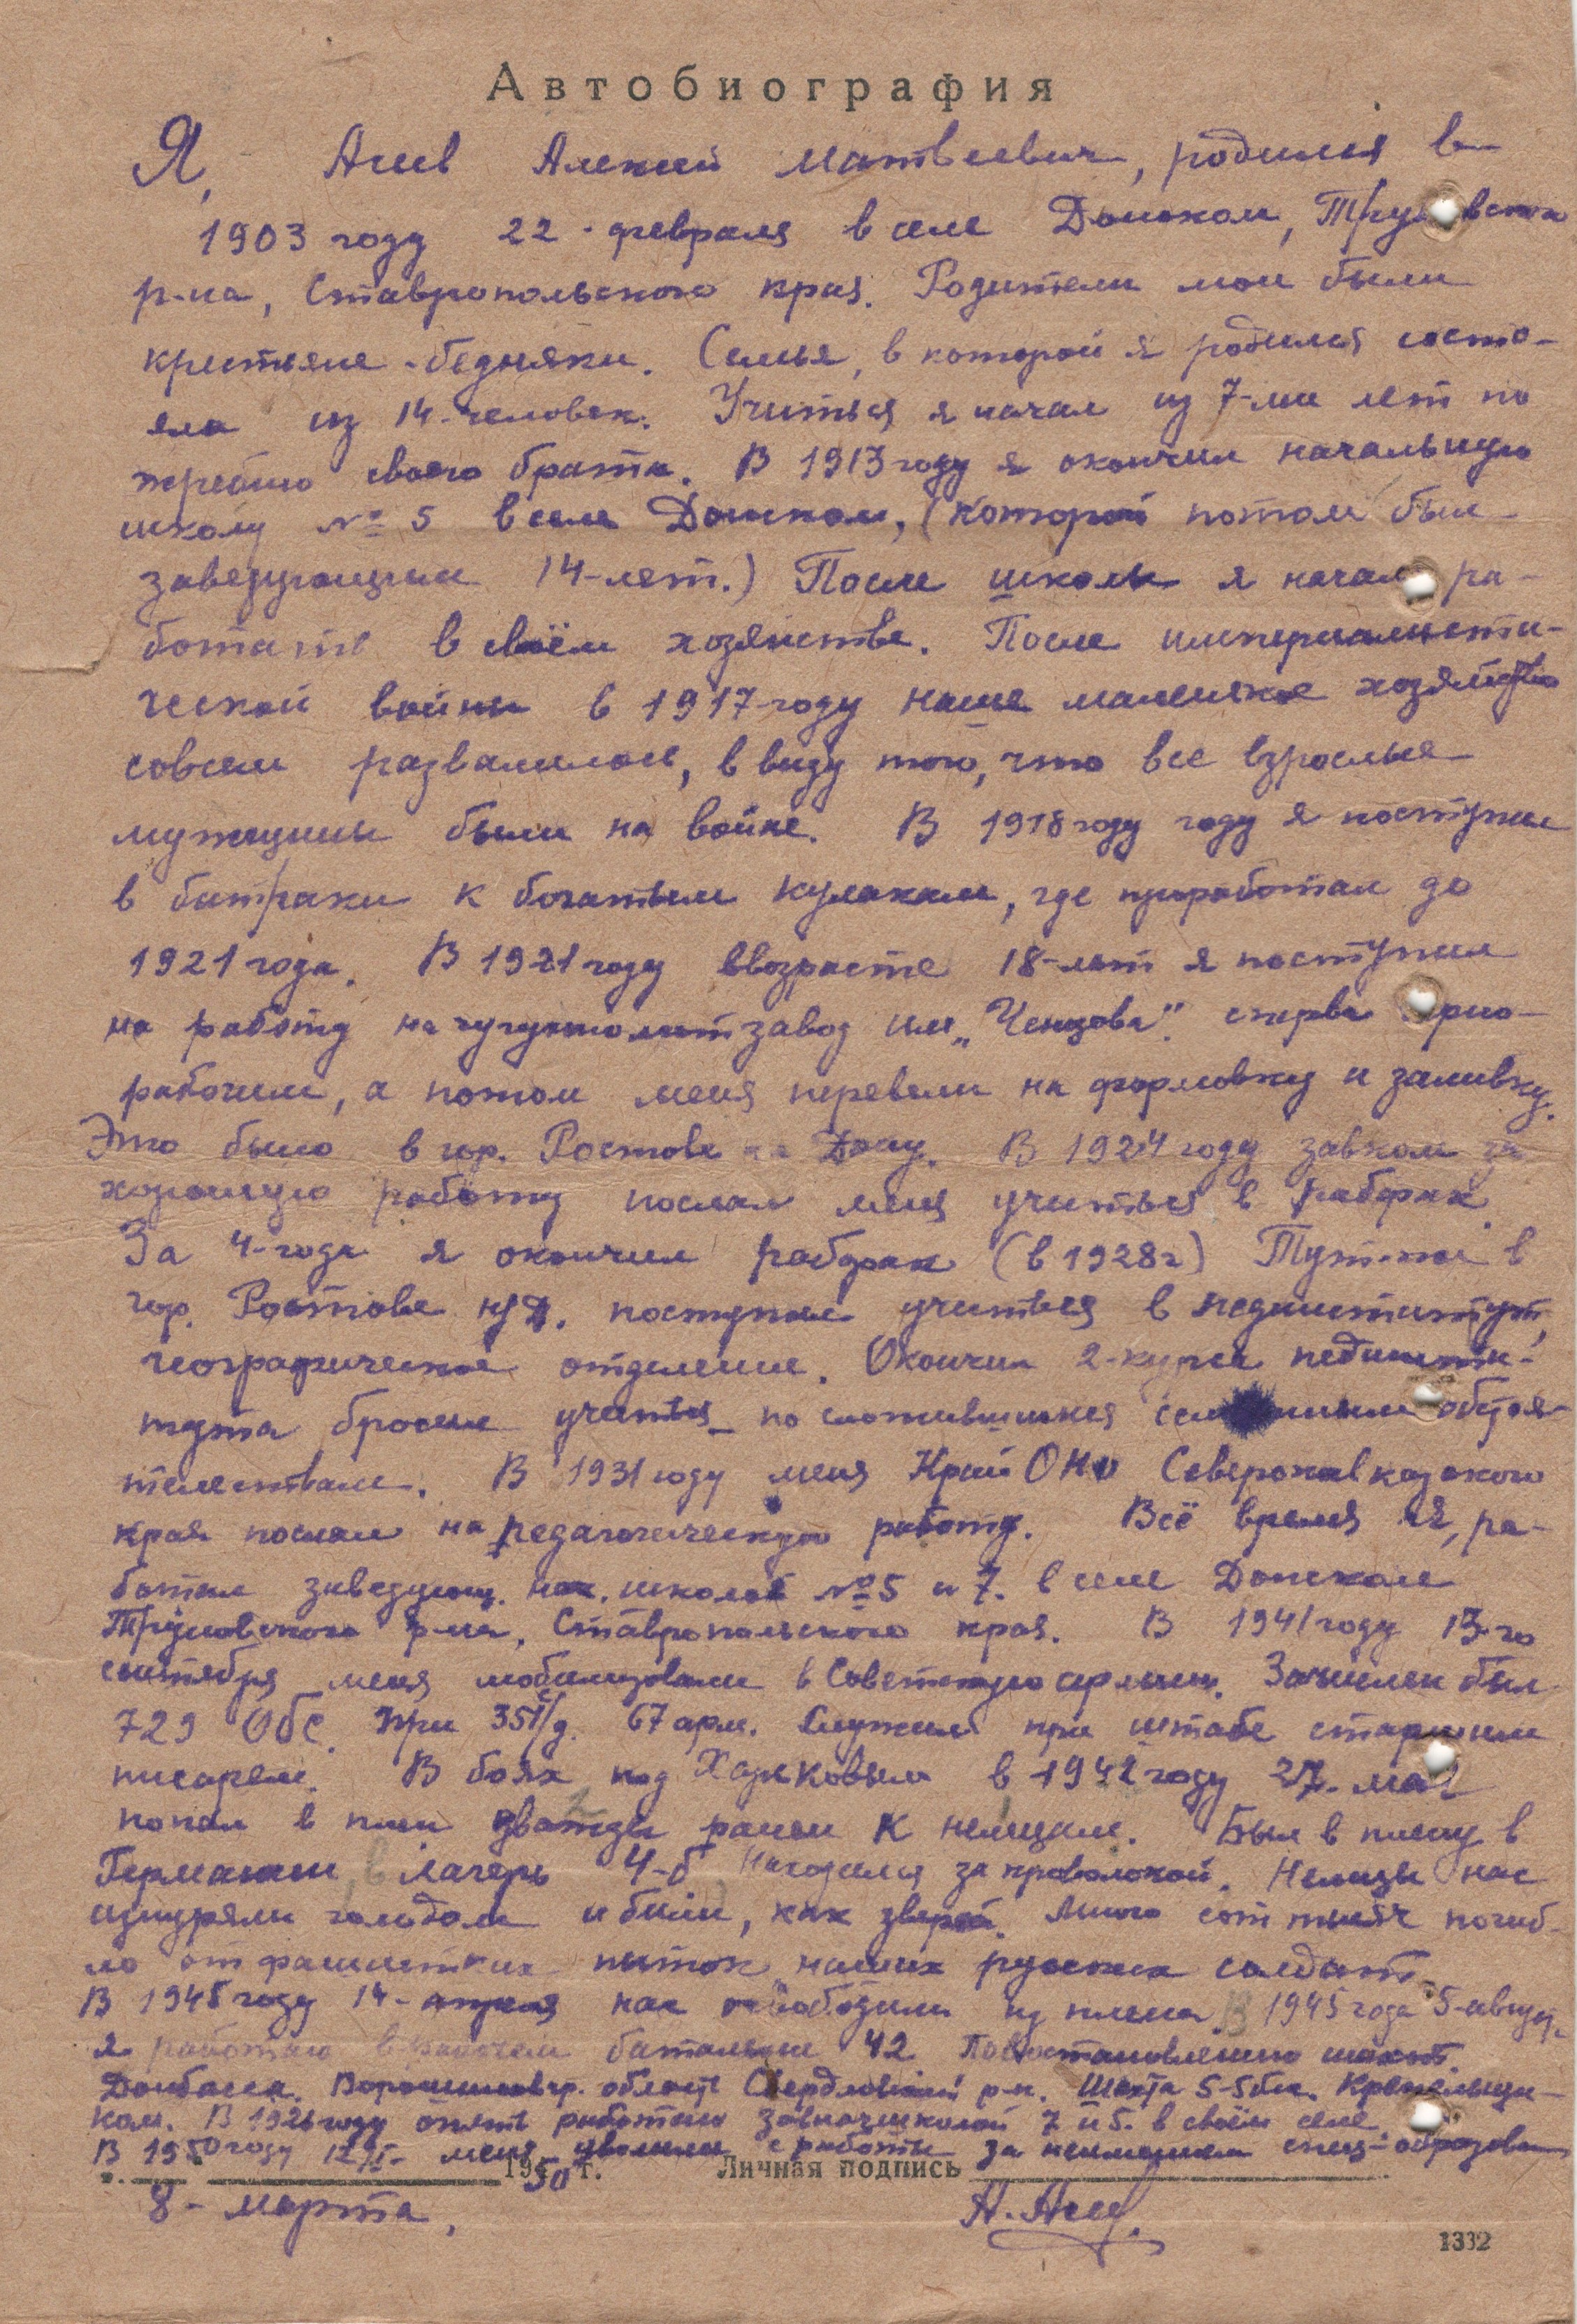 Автобиография
Я, Агеев Алексей Матвеевич, родился в
1903 году 22-февраля в селе Донском, Труновского
р-на, Ставропольского края. Родители мои были
крестьяне-бедняки. Семья, в которой я родился состо-
яла из 14-человек. Учиться я начал из 7-ми лет по
жребию своего брата. В 1913 году я окончил начальную
школу № 5 в селе Донском, (которой потом был
заведующим 14-лет.) После школы я начал ра-
ботать в своём хозяйстве. После империалисти-
ческой войны в 1917-году наше маленькое хозяйство
совсем развалилось, в виду того, что все взрослые
мужщины были на войне. В 1918 году году я поступил
в батраки к богатым кулакам, где проработал до
1921 года. В 1921 году ввозрасте 18-лет я поступил
на работу на чугунолит завод им „Ченцова". сперва черно-
рабочим, а потом меня перевели на формовку и заливку.
Это было в гор. Ростове на Дону. В 1924 году завком за
хорошую работу послал меня учиться в рабфак.
За 4-года я окончил рабфак (в 1928г) Тут-же в
гор. Ростове н/Д. поступил учиться в пединститут,
географическое отделение. Окончил 2-курса педінсти-
тута бросил учиться по сложившимся семейным обстоя-
тельствам. В 1931 году меня Край ОНО Северокавказского
края послал на педагогическую работу. Всё время я, ра-
ботал заведующ. нач. школой № 5 и 7. в селе Донском
Труновского р-на, Ставропольского края. В 1941 году 13-го
сентября меня мобилизовали в Советскую армию. Зачислен был
729 ОБС. при 351 с/д. 67 арм. Служил при штабе старшим
писарем. В боях под Харьковым в 1942 году 27-мая
попал в плен дважды ранен к немцам. Был в плену в
Германии в лагерь 4-б находился за проволокой. Немцы нас
изнуряли голодом и били, как зверей. Много сот тысяч погиб-
ло от фашистких пыток наших русских солдат.
В 1945 году 14-апреля нас освободили из плена. В 1945 года 5-август.
я работаю в рабочем батальоне 42 Повостановлению шахт.
Донбасса. Ворошиловгр. область Свердловский р-н. Шахта 5-5бис.
ком. В 1946 году опять работаю завначшколой 7 и 5. в своём селе.
В 1950 году 12/I- меня уволили с работы за неимением спец-образован
1950 г. Личная подпись
8-марта, А. Агеев.
1332